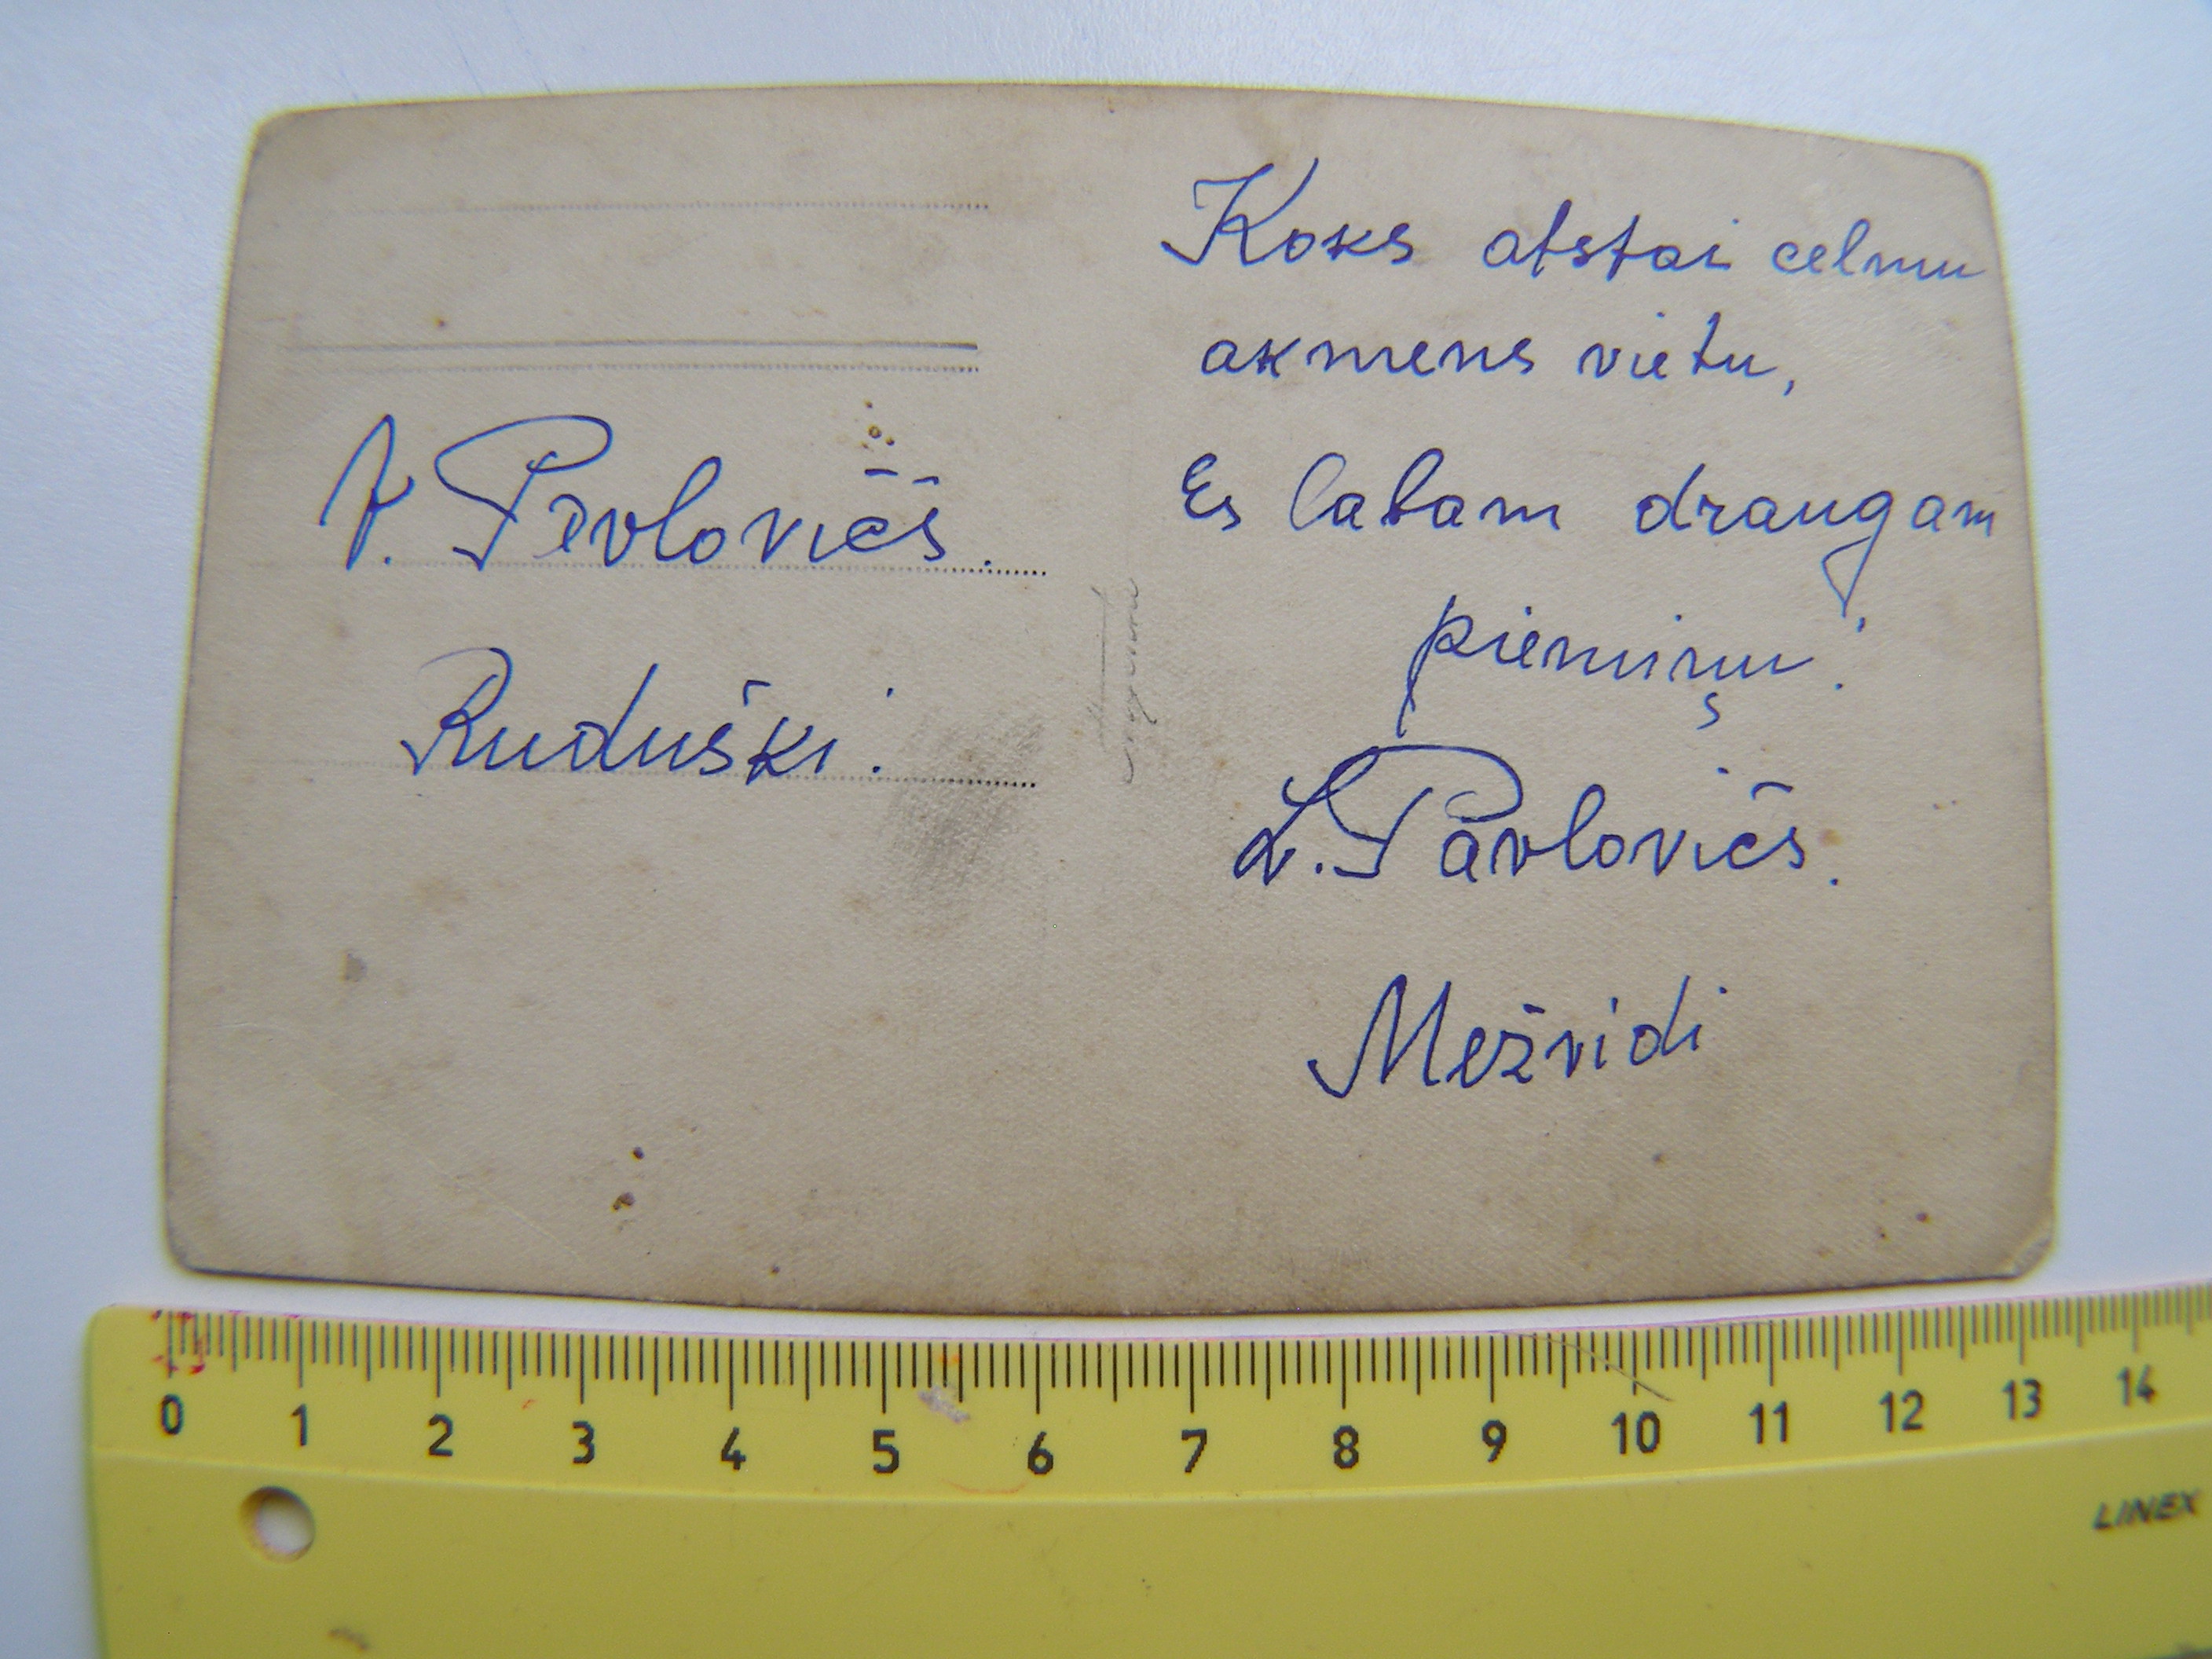 V. Pavlovičs.
Ruduški.
Koks atstai celmu
akmens vietu,
Es labam draugam
piemiņu!
L. Pavlovičs.
Mežvidi
0 1 2 3 4 5 6 7 8 9 10 11 12 13 14
LINEX